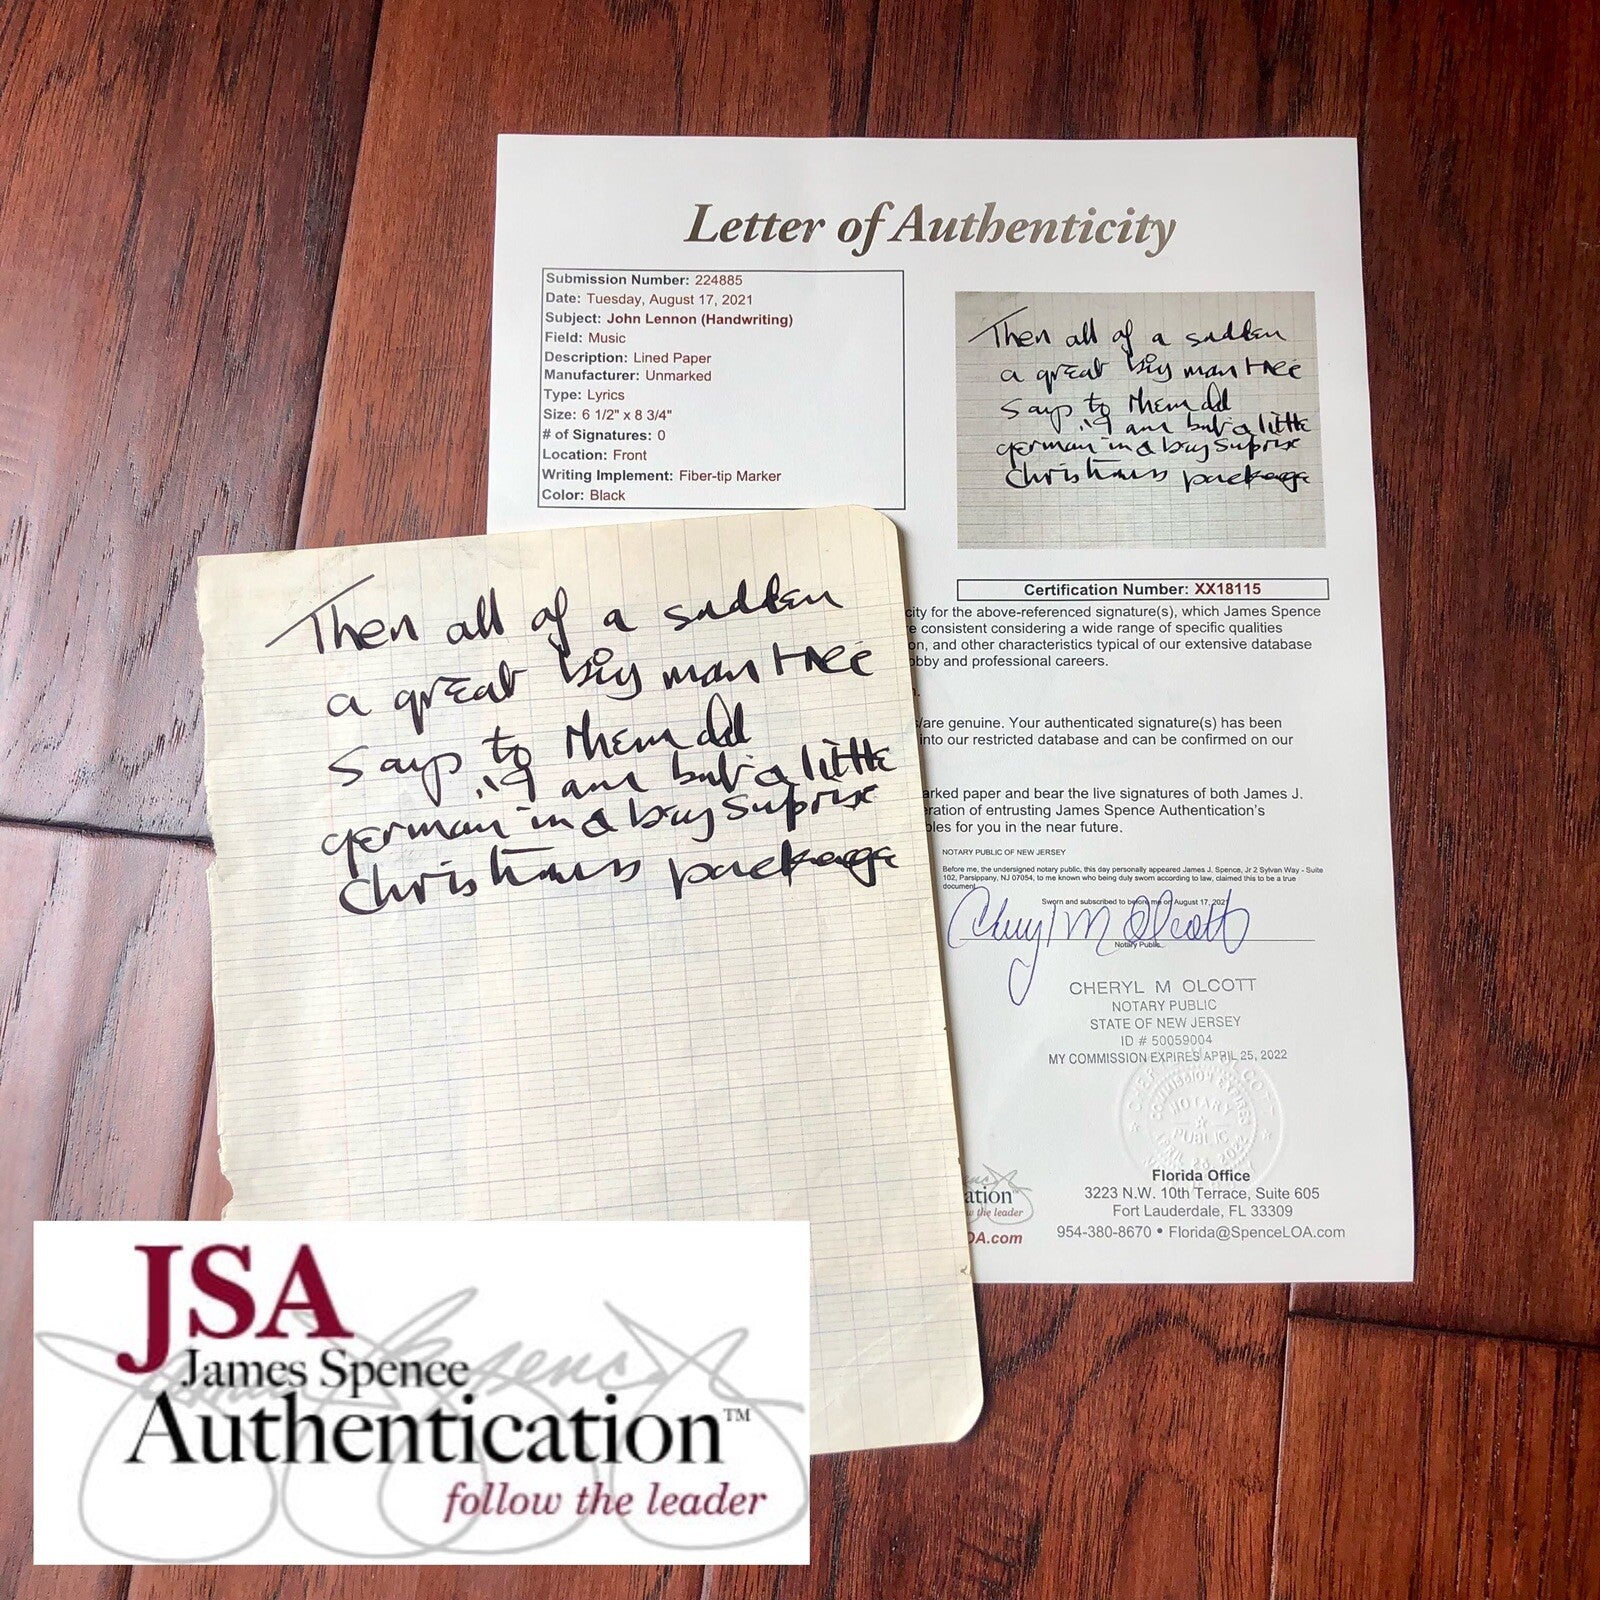 Letter of Authenticity
Submission Number: 224885
Date: Tuesday, August 17, 2021
Subject: John Lennon (Handwriting)
Field: Music
Description: Lined Paper
Manufacturer: Unmarked
Type: Lyrics
Size: 6 1/2" x 8 3/4"
# of Signatures: 0
Location: Front
Writing Implement: Fiber-tip Marker
Color: Black
Then all of a sudden
a great big man tree
says to them all
"I am but a little
german in a big suprise
christmas package
Certification Number: XX18115
city for the above-referenced signature(s), which James Spence
e consistent considering a wide range of specific qualities
on, and other characteristics typical of our extensive database
obby and professional careers.
s/are genuine. Your authenticated signature(s) has been
into our restricted database and can be confirmed on our
arked paper and bear the live signatures of both James J.
eration of entrusting James Spence Authentication's
bles for you in the near future.
NOTARY PUBLIC OF NEW JERSEY
Before me, the undersigned notary public, this day personally appeared James J. Spence, Jr 2 Sylvan Way - Suite
102, Parsippany, NJ 07054, to me known who being duly sworn according to law, claimed this to be a true
document.
Sworn and subscribed to before me on August 17, 2021
Cheryl M Olcott
Notary Public
CHERYL M OLCOTT
NOTARY PUBLIC
STATE OF NEW JERSEY
ID # 50059004
MY COMMISSION EXPIRES APRIL 25, 2022
NOTARY
PUBLIC
Florida Office
3223 N.W. 10th Terrace, Suite 605
Fort Lauderdale, FL 33309
954-380-8670 • Florida@SpenceLOA.com
ation
w the leader
OA.com
Then all of a sudden
a great big man tree
says to them all
"I am but a little
german in a big suprise
christmas package
JSA
James Spence
Authentication™
follow the leader